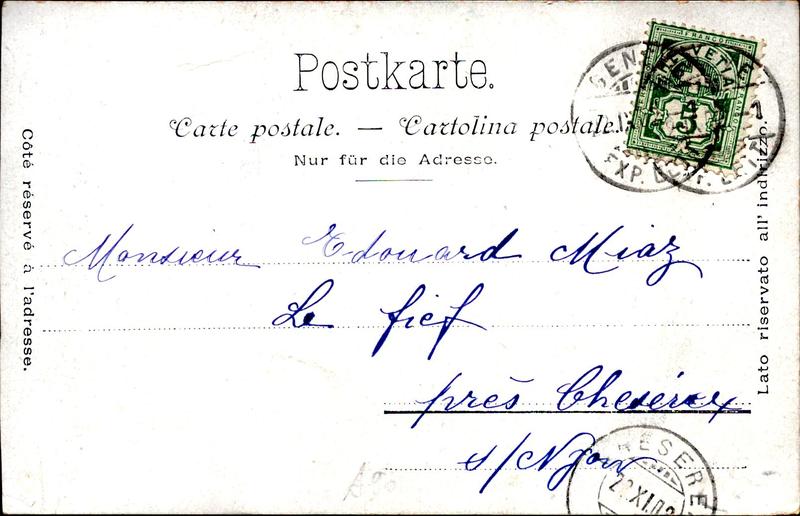 Postkarte.
Carte postale. — Cartolina postale.
Nur für die Adresse.
Côté réservé à l'adresse.
Lato riservato all' indirizzo.
FRANCO
HELVETIA
5
EXP. LETTR.
Monsieur Edouard Miaz
Le fief
près Chesérex
s/Nyon
A90